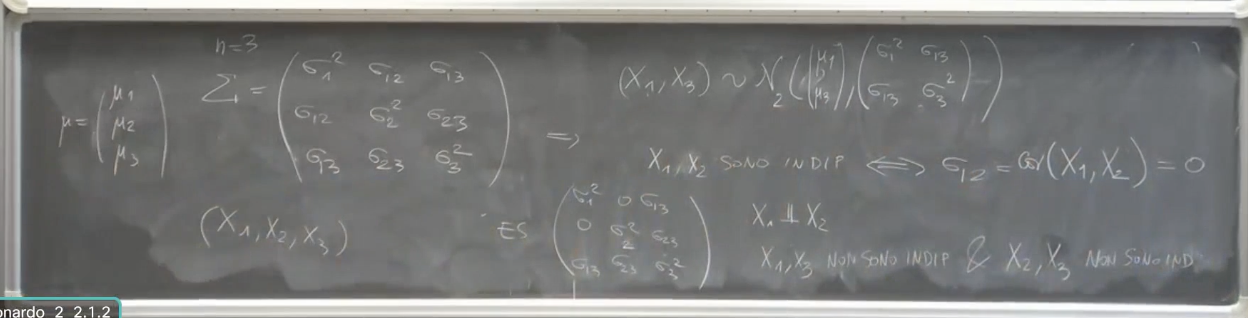 n=3
μ = (μ1 μ2 μ3)
Σ = (σ1² σ12 σ13
σ12 σ2² σ23
σ13 σ23 σ3²)
(X1, X2, X3)
⟹
(X1, X3) ~ N2((μ1, μ3), (σ1² σ13
σ13 σ3²))
X1, X2 SONO INDIP ⟺ σ12 = Cov(X1, X2) = 0
ES (σ1² 0 σ13
0 σ2² σ23
σ13 σ23 σ3²)
X1 ⫫ X2
X1, X3 NON SONO INDIP & X2, X3 NON SONO IND.
onardo_2_2.1.2